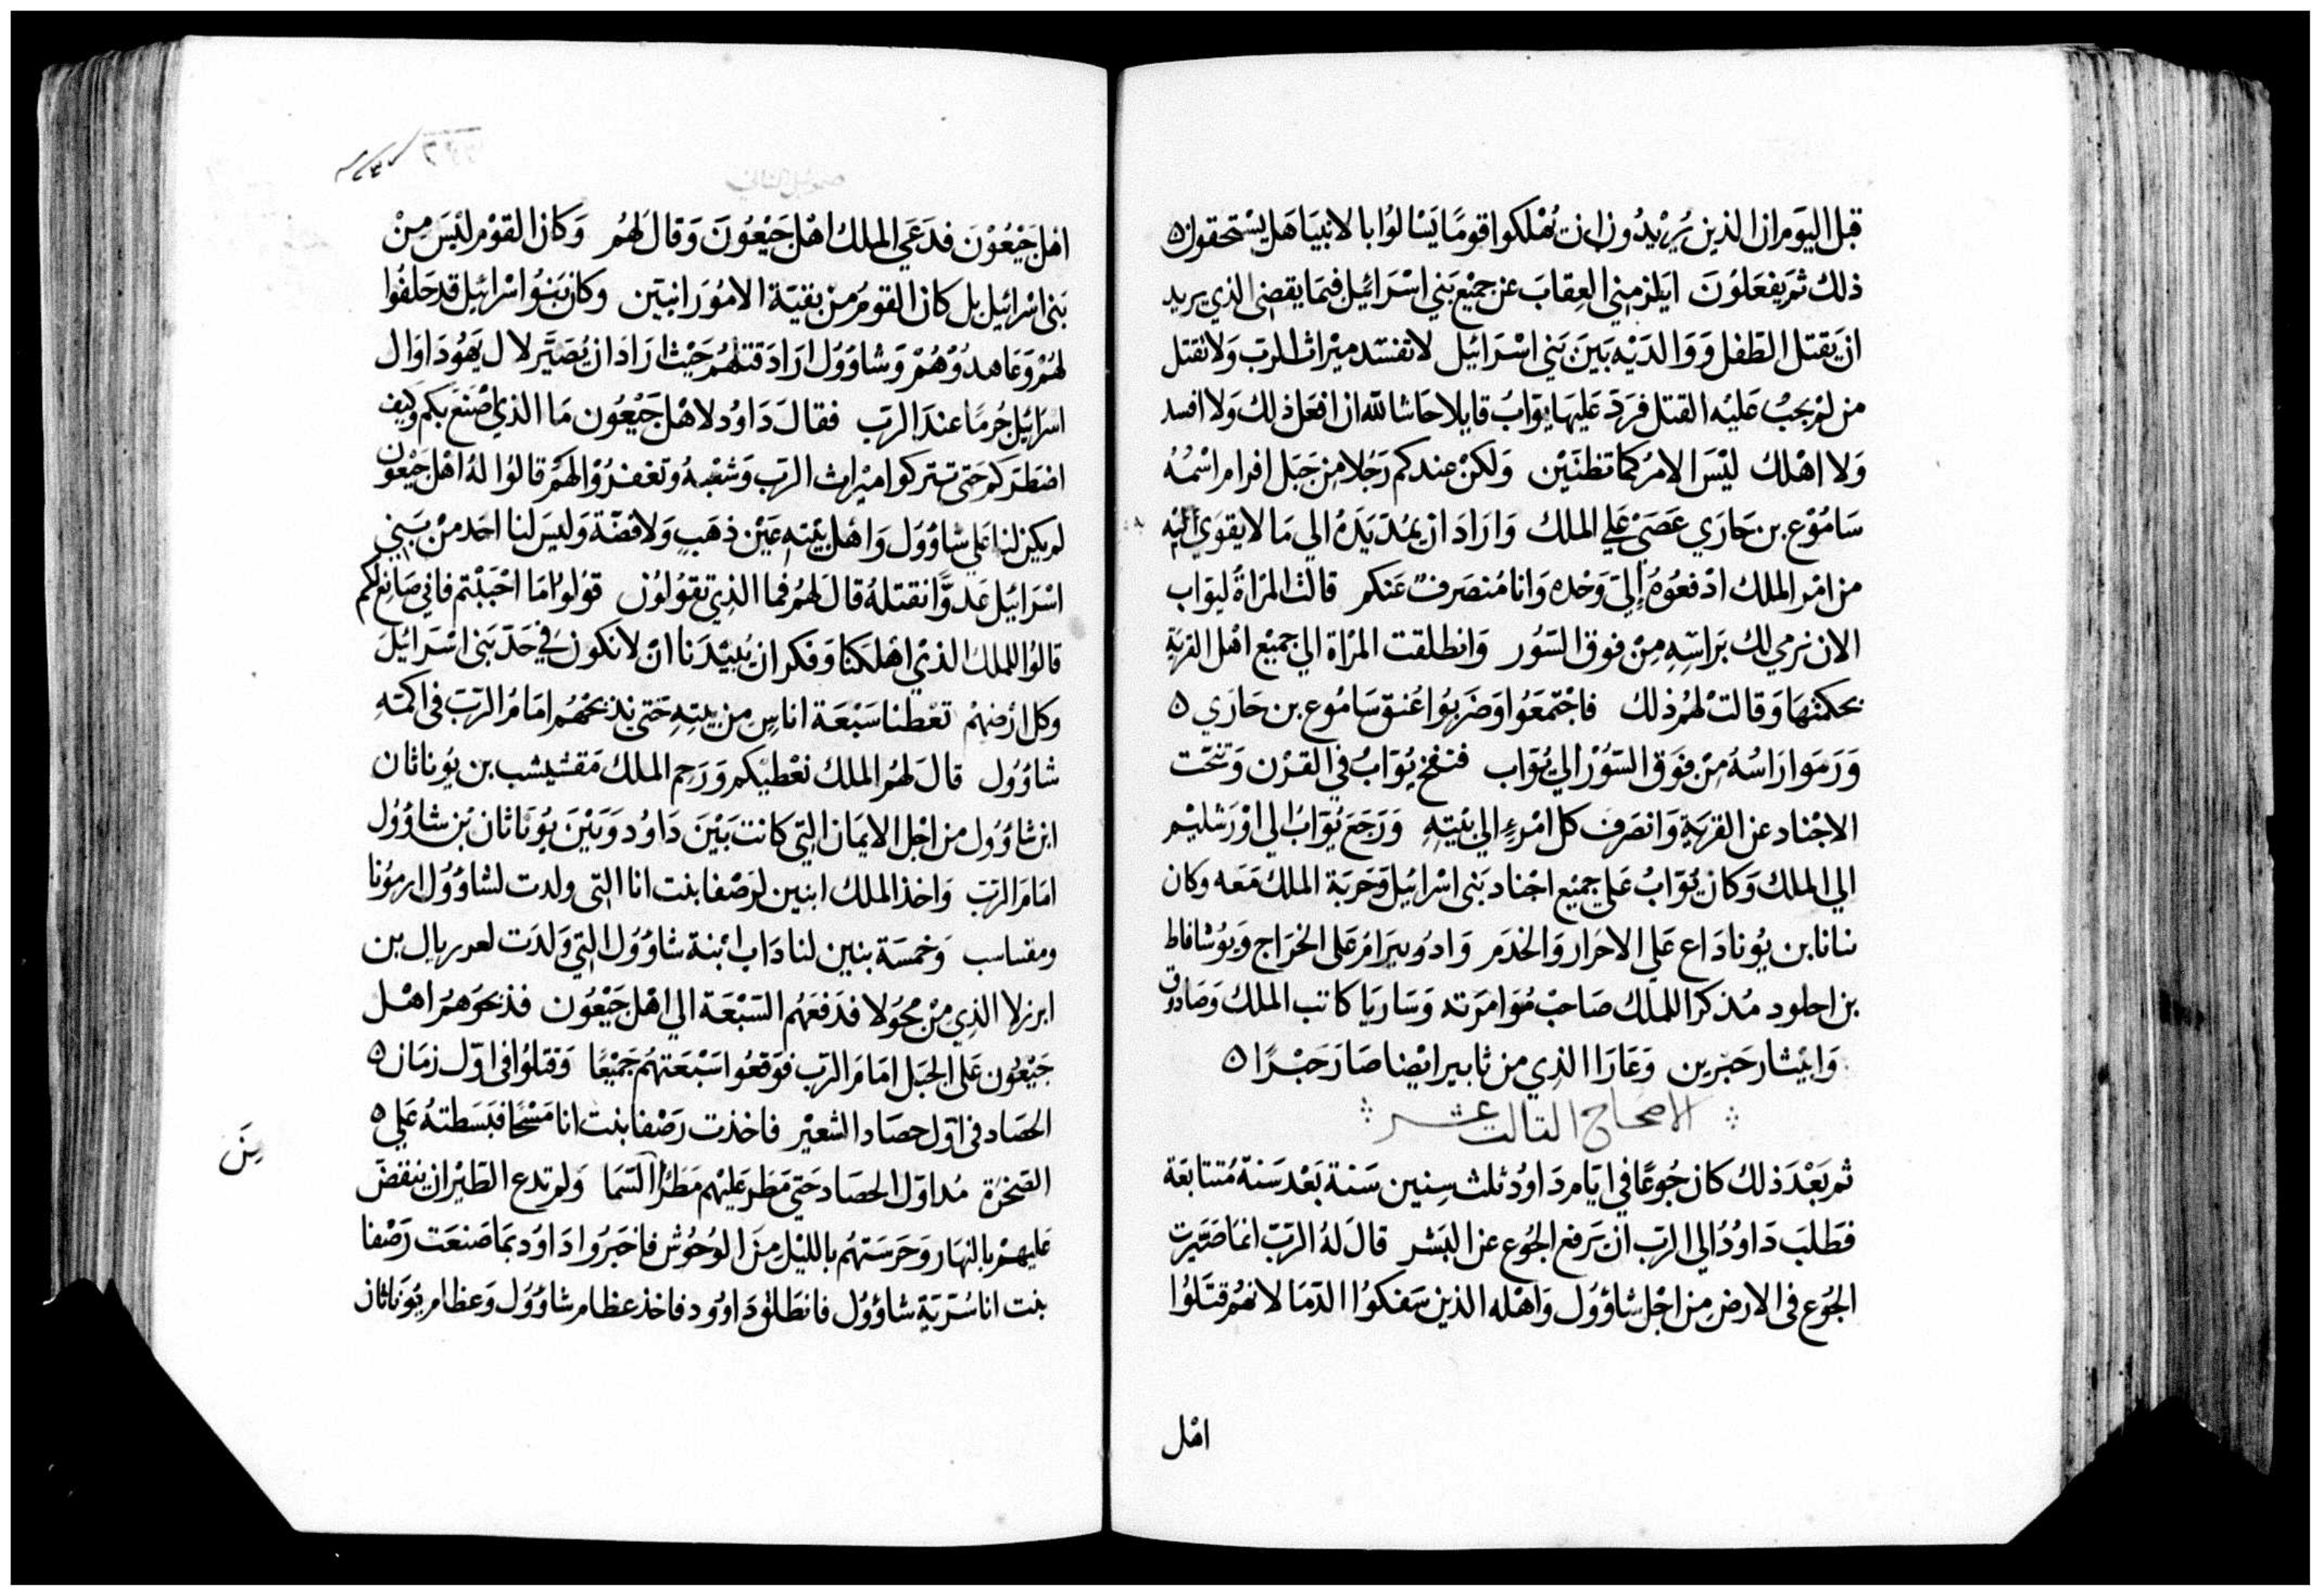 قبل اليوم ان الذين يريدون ان تهلكوا قومًا يسالوا بالانبيا هل يستحقون
ذلك ثم يفعلون ايلزمني العقاب عن جميع بني اسرائيل فيما يقضى الذي يريد
ان يقتل الطفل ووالديه بين بني اسرائيل لا تفسد ميراث الرب ولا تقتل
من لم يجب عليه القتل فرد عليها يواب قايلا حاشا لله ان افعل ذلك ولا افسد
ولا اهلك ليس الامر كما تظنين ولكن عندكم رجلا من جبل افرام اسمه
ساموع بن حاري عصى علي الملك واراد ان يمد يده الي ما لا يقوي اليه
من امر الملك ادفعوه إلي وحده وانا منصرف عنكم قالت المراة ليواب
الان نرمي لك براسه من فوق السور وانطلقت المراة الي جميع اهل القرية
بحكمتها وقالت لهم ذلك فاجتمعوا وضربوا عنق ساموع بن حاري
ورموا راسه من فوق السور الي يواب فنفخ يواب في القرن وتنحت
الاجناد عن القرية وانصرف كل امرء الي بيته ورجع يواب الي اورشليم
الي الملك وكان يواب علي جميع اجناد بني اسرائيل وحربة الملك معه وكان
بنانا بن يوناداع علي الاحرار والخدم وادونيرام على الخراج ويوشافاط
بن احلود مذكرا للملك صاحب موامرته وساريا كاتب الملك وصادوق
وابيثار حبرين وعارا الذي من ثابير ايضا صار حبرًا
الاصحاح الثالث عشر
ثم بعد ذلك كان جوعًا في ايام داود ثلث سنين سنة بعد سنة متتابعة
فطلب داود الي الرب ان يرفع الجوع عن البشر قال له الرب انما صيرت
الجوع في الارض من اجل شاوول واهله الذين سفكوا الدما لانهم قتلوا
اهل
صموئيل الثاني
اهل جبعون فدعي الملك اهل جبعون وقال لهم وكان القوم ليس من
بني اسرائيل بل كان القوم من بقية الامورانيين وكان بنو اسرائيل قد حلفوا
لهم وعاهدوهم وشاوول اراد قتلهم حيث اراد ان يصير لال يهودا وال
اسرائيل جرمًا عند الرب فقال داود لاهل جبعون ما الذي اصنع بكم وكيف
اضطركم حتى تتركوا ميراث الرب وشعبه وتغفروا لهم قالوا له اهل جبعون
لم يكن لنا علي شاوول واهل بيته عين ذهب ولا فضة وليس لنا احد من بني
اسرائيل عدوًا نقتله قال لهم فما الذي تقولون قولوا ما احببتم فاني صانع لكم
قالوا للملك الذي اهلكنا وفكر ان يبيدنا ان لا نكون في حد بني اسرائيل
وكل ارضهم تعطنا سبعة اناس من بيته حتى نذبحهم امام الرب في اكمته
شاوول قال لهم الملك نعطيكم ورحم الملك مفشيشب بن يوناثان
ابن شاوول من اجل الايمان التي كانت بين داود وبين يوناثان بن شاوول
امام الرب واخذ الملك ابنين لرصفا بنت انا التي ولدت لشاوول ارمونا
ومفساسب وخمسة بنين لناداب ابنة شاوول التي ولدت لعدريال بن
ابرزلا الذي من محولا فدفعهم السبعة الي اهل جبعون فذبحوهم اهل
جبعون على الجبل امام الرب فوقعوا سبعتهم جميعًا وقتلوا في اول زمان
الحصاد في اول حصاد الشعير فاخذت رصفا بنت انا مسحًا فبسطته علي
الصخرة مذ اول الحصاد حتى مطر عليهم مطر السما ولم تدع الطير ان ينقض
عليهم بالنهار وحرستهم بالليل من الوحوش فاخبروا داود بما صنعت رصفا
بنت انا سرية شاوول فانطلق داوود فاخذ عظام شاوول وعظام يوناثان